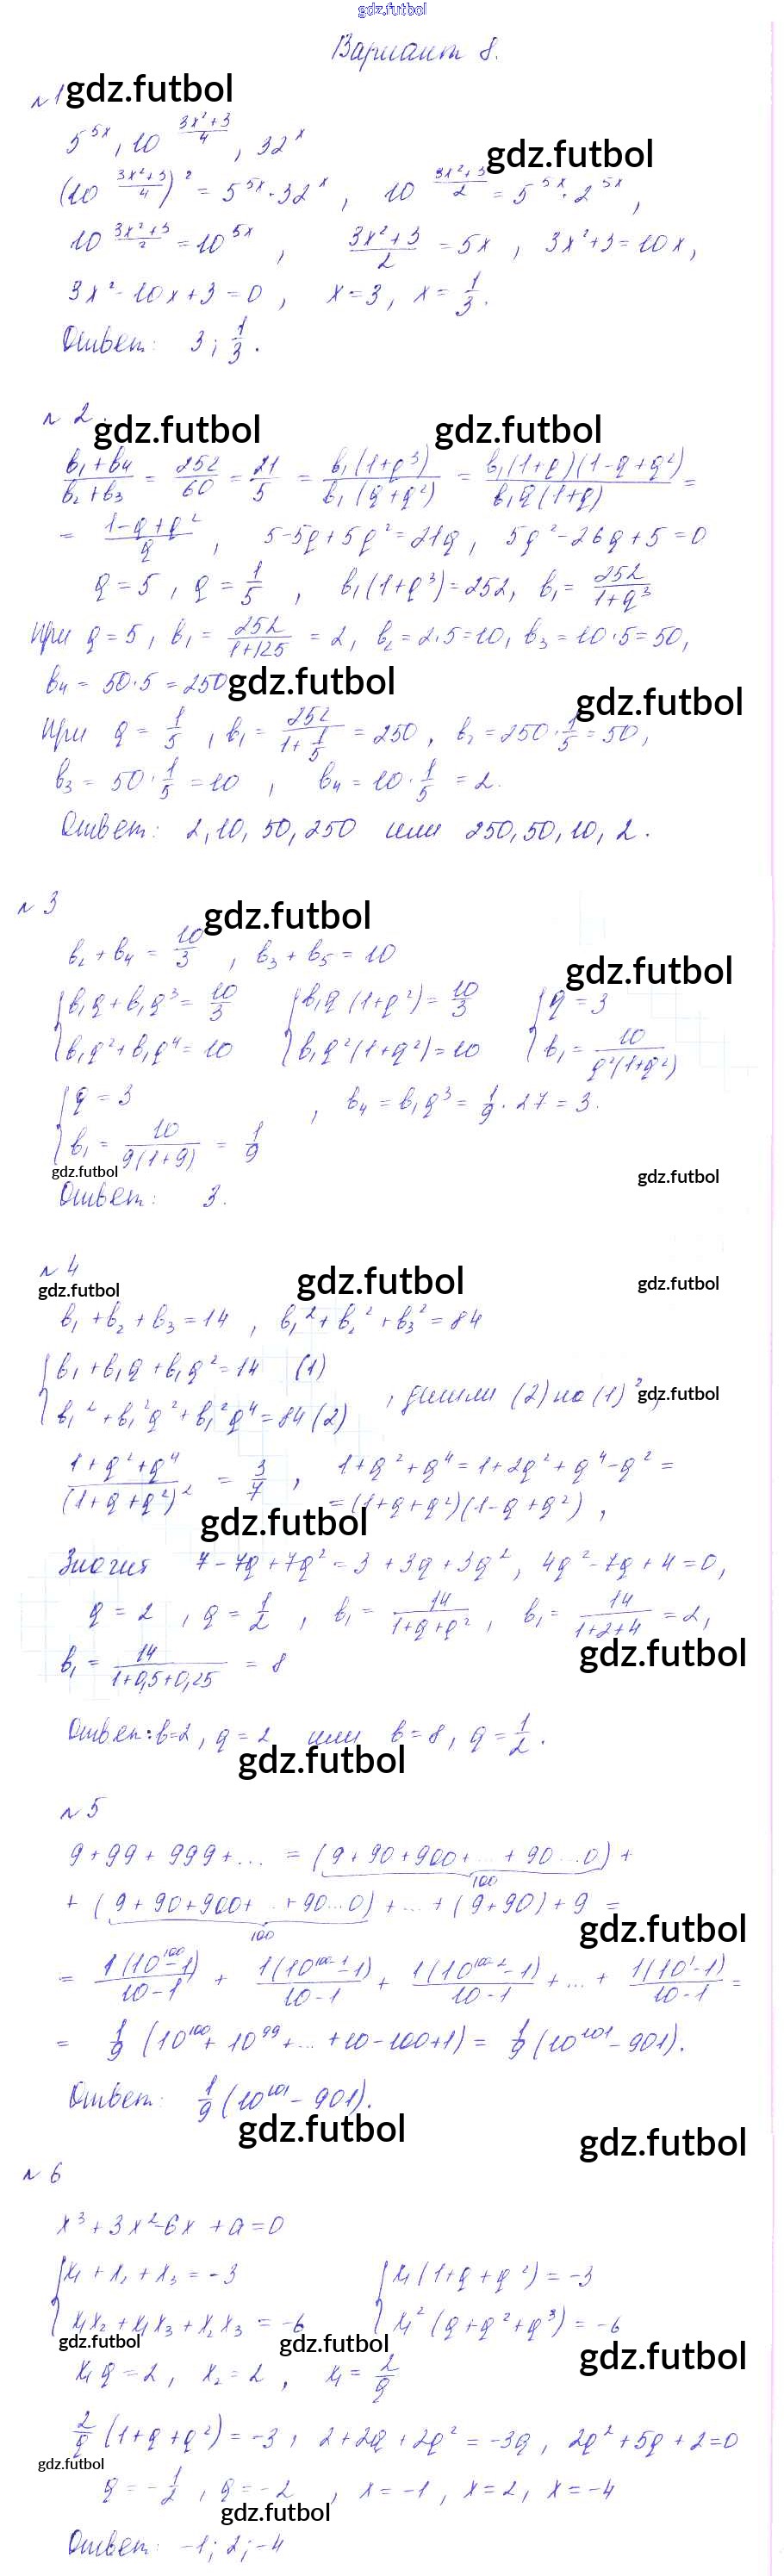 gdz.futbol
Вариант 8.
№1 gdz.futbol
5^{5x}, 10^{\frac{3x²+3}{4}}, 32^x
gdz.futbol
(10^{\frac{3x²+3}{4}})² = 5^{5x}·32^x, 10^{\frac{3x²+3}{2}} = 5^{5x}·2^{5x},
10^{\frac{3x²+3}{2}} = 10^{5x}, \frac{3x²+3}{2} = 5x, 3x²+3=10x,
3x²-10x+3=0, x=3, x=\frac{1}{3}.
Ответ: 3; \frac{1}{3}.
№ 2.
gdz.futbol gdz.futbol
\frac{b₁+b₄}{b₂+b₃} = \frac{252}{60} = \frac{21}{5} = \frac{b₁(1+q³)}{b₁(q+q²)} = \frac{b₁(1+q)(1-q+q²)}{b₁q(1+q)} =
= \frac{1-q+q²}{q}, 5-5q+5q²=21q, 5q²-26q+5=0
q=5, q=\frac{1}{5}, b₁(1+q³)=252, b₁=\frac{252}{1+q³}
При q=5, b₁=\frac{252}{1+125}=2, b₂=2·5=10, b₃=10·5=50,
b₄=50·5=250 gdz.futbol
gdz.futbol
При q=\frac{1}{5}, b₁=\frac{252}{1+\frac{1}{5}}=250, b₂=250·\frac{1}{5}=50,
b₃=50·\frac{1}{5}=10, b₄=10·\frac{1}{5}=2.
Ответ: 2, 10, 50, 250 или 250, 50, 10, 2.
№ 3
gdz.futbol
b₂+b₄=\frac{10}{3}, b₃+b₅=10
gdz.futbol
{b₁q+b₁q³=\frac{10}{3} {b₁q(1+q²)=\frac{10}{3} {q=3
{b₁q²+b₁q⁴=10 {b₁q²(1+q²)=10 {b₁=\frac{10}{q²(1+q²)}
{q=3
, b₄=b₁q³=\frac{1}{9}·27=3.
{b₁=\frac{10}{9(1+9)}=\frac{1}{9}
gdz.futbol gdz.futbol
Ответ: 3.
№ 4
gdz.futbol gdz.futbol gdz.futbol
b₁+b₂+b₃=14, b₁²+b₂²+b₃²=84
{b₁+b₁q+b₁q²=14 (1)
{b₁²+b₁²q²+b₁²q⁴=84 (2) , делим (2) на (1)², gdz.futbol
\frac{1+q²+q⁴}{(1+q+q²)²} = \frac{3}{7}, 1+q²+q⁴=1+2q²+q⁴-q²=
=(1+q+q²)(1-q+q²),
gdz.futbol
Значит 7-7q+7q²=3+3q+3q², 4q²-7q+4=0,
q=2, q=\frac{1}{2}, b₁=\frac{14}{1+q+q²}, b₁=\frac{14}{1+2+4}=2,
gdz.futbol
b₁=\frac{14}{1+0,5+0,25}=8
Ответ: b=2, q=2 или b=8, q=\frac{1}{2}.
gdz.futbol
№ 5
9+99+999+... = (9+90+900+...+90...0)+
100
+(9+90+900+...+90...0)+...+(9+90)+9=
100
gdz.futbol
= \frac{1(10^{100}-1)}{10-1} + \frac{1(10^{100-1}-1)}{10-1} + \frac{1(10^{100-2}-1)}{10-1} +...+ \frac{1(10¹-1)}{10-1} =
= \frac{1}{9}(10^{100}+10^{99}+...+10-100+1) = \frac{1}{9}(10^{101}-901).
Ответ: \frac{1}{9}(10^{101}-901).
gdz.futbol gdz.futbol
№ 6
x³+3x²-6x+a=0
{x₁+x₂+x₃=-3 {x₁(1+q+q²)=-3
{x₁x₂+x₁x₃+x₂x₃=-6 {x₁²(q+q²+q³)=-6
gdz.futbol gdz.futbol gdz.futbol
x₁q=2, x₂=2, x₁=\frac{2}{q}
\frac{2}{q}(1+q+q²)=-3, 2+2q+2q²=-3q, 2q²+5q+2=0
gdz.futbol
q=-\frac{1}{2}, q=-2, x=-1, x=2, x=-4
gdz.futbol
Ответ: -1; 2; -4